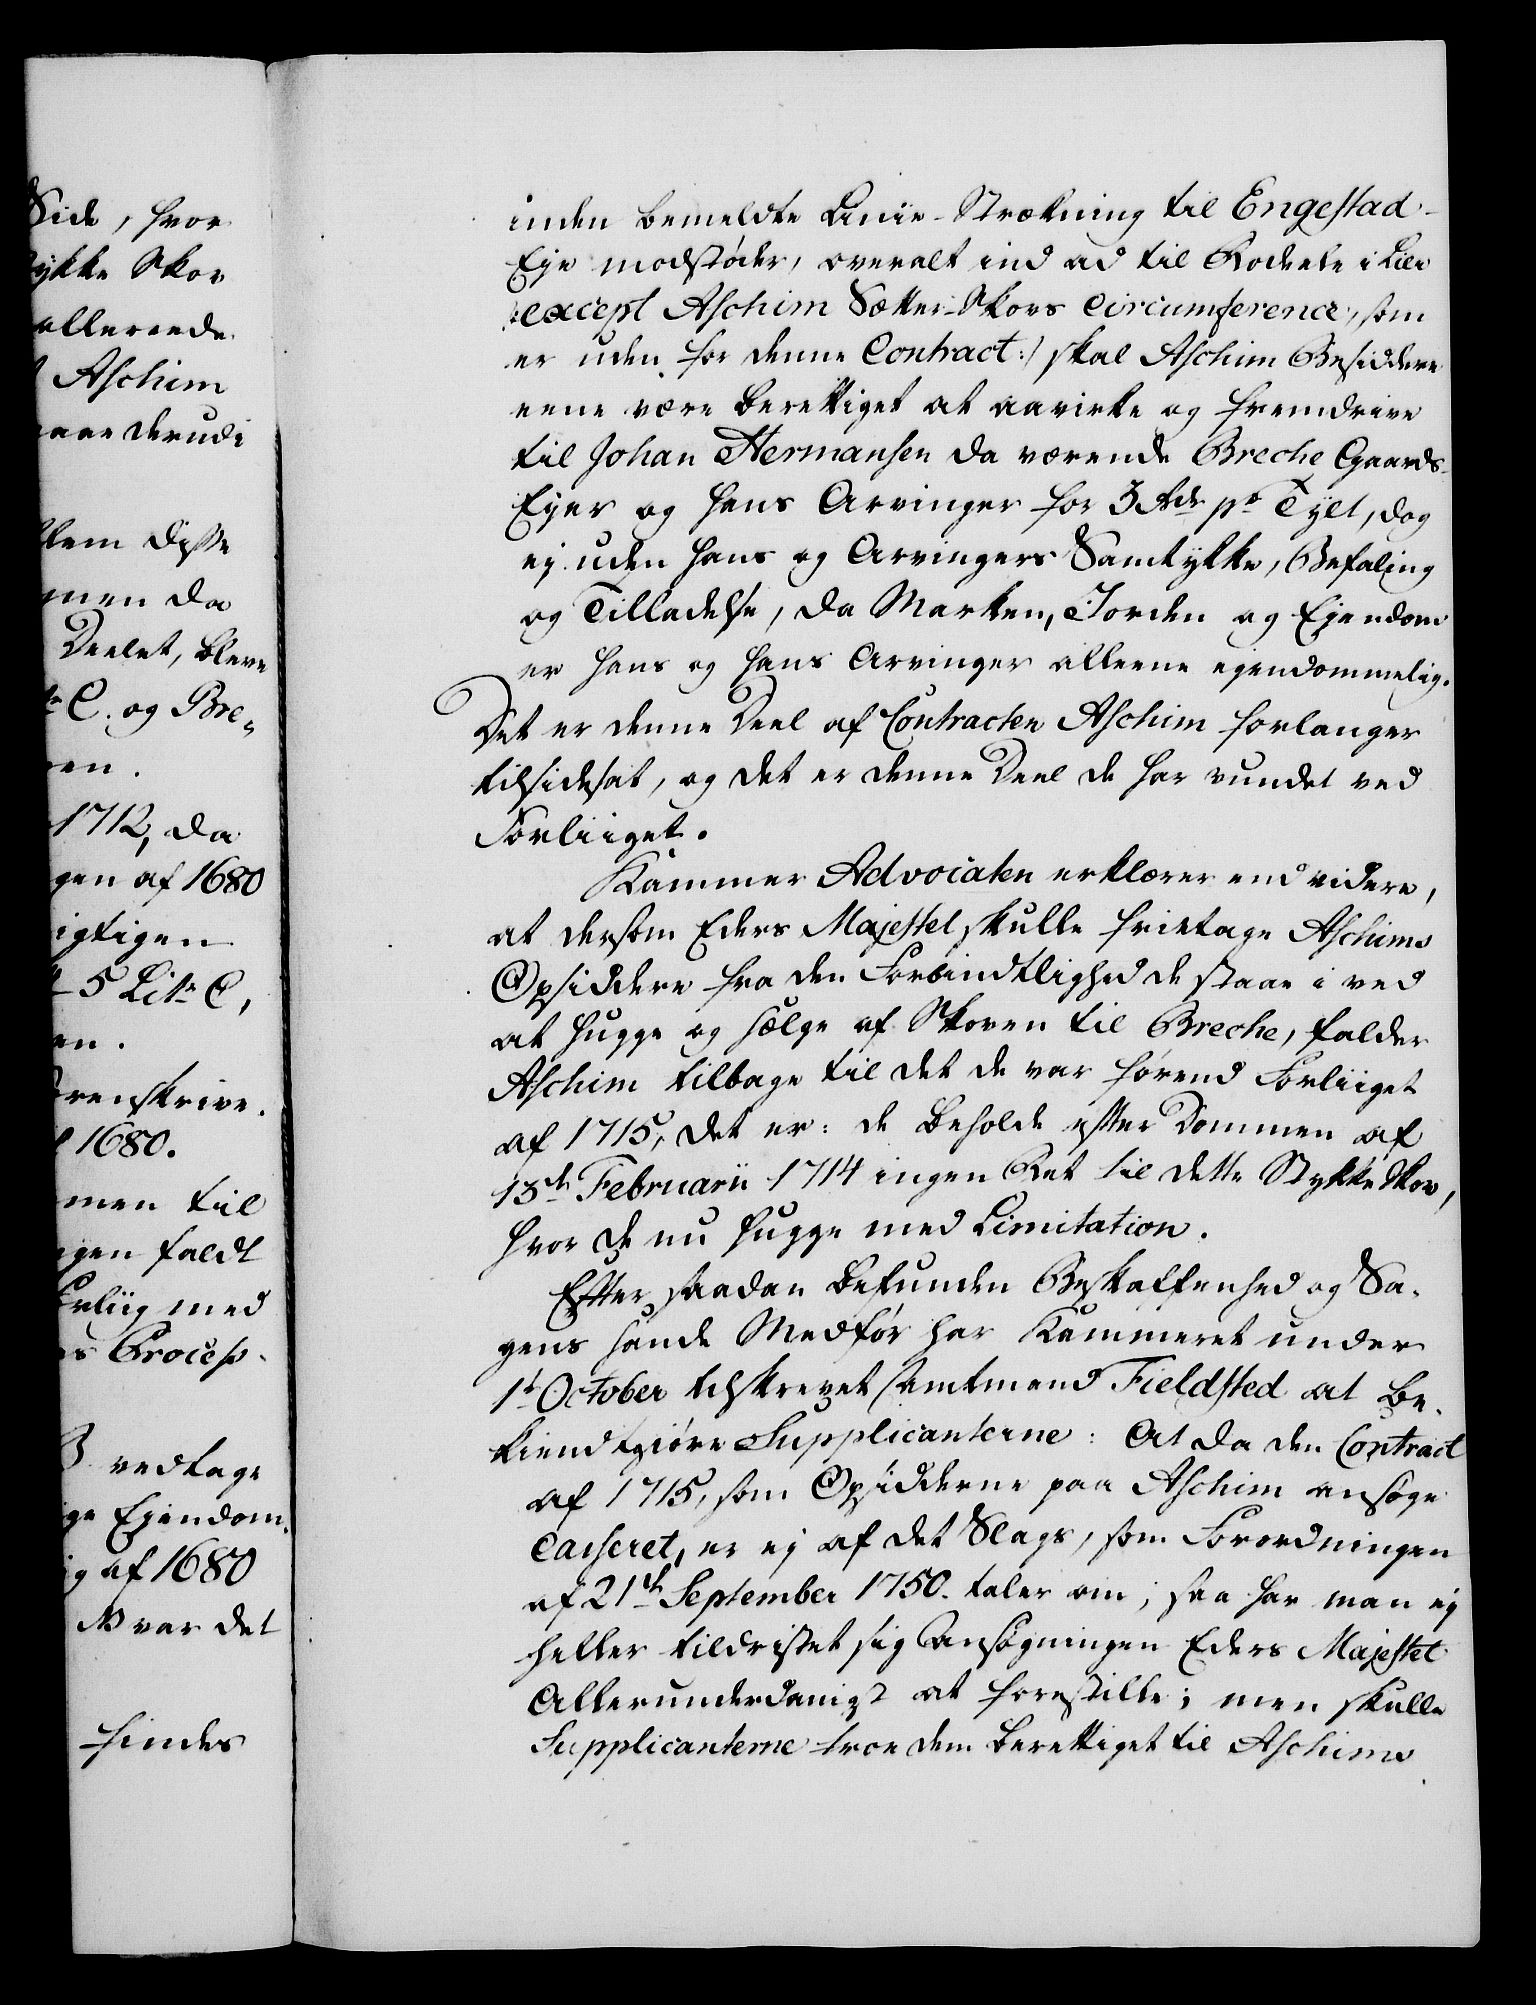 Side, hvor
ykke Skov
allereede
Aschim
gaae derudi
llem disse
men da
Deelet, bleve
C. og Bre-
en.
1712, da
gen af 1680
igtigen
5 Litr C,
en.
renskrive.
1680.
men til
gen faldt
orliig med
Process.
vedtage
ge Ejendom.
ig af 1680
var det
findes
inden bemeldte Linie-Strækning til Engestad-
Eje modstøder, overalt ind ad til Rodeele i Lile
|: except Aschim Sætter-Skovs Circumference, som
er uden for denne Contract :/ skal Aschim Besiddere
eene være berettiget at aavirke og fremdrive
til Johan Hermansen da værende Breche Gaards-
Ejer og hans Arvinger for 3 Rdr pr Tylt, dog
ej uden hans og Arvingers Samtykke, Befaling
og Tilladelse, da Marken, Jorden og Ejendom
er hans og hans Arvinger alleene egendommelig.
Det er denne Deel af Contracten Aschim forlanger
tilsidesat, og det er denne Deel de har vundet ved
Forliiget.
Kammer Advocaten erklærer end videre,
at dersom Eders Majestet skulle fritage Aschims
Opsiddere fra den Forbindtlighed de staae i ved
at hugge og sælge af Skoven til Breche, falder
Aschim tilbage til det de var førend Forliiget
af 1715, det er: de beholde efter Dommen af
13de Februarii 1714 ingen Ret til dette Stykke Skov,
hvor de nu hugge med Limitation.
Efter saadan befunden Beskaffenhed og Sa-
gens sande Medfør har Kammeret under
1te October tilskrevet Amtmand Fieldsted at be-
kiendtgiøre Supplicanterne: At da den Contract
af 1715, som Opsidderne paa Aschim ansøge
Casseret, er ej af det Slags, som Forordningen
af 21de September 1750. taler om; saa har man ej
heller tildristet sig Ansøgningen Eders Majestet
Allerunderdanigst at forestille; men skulle
Supplicanterne troe dem berettiget til Aschims